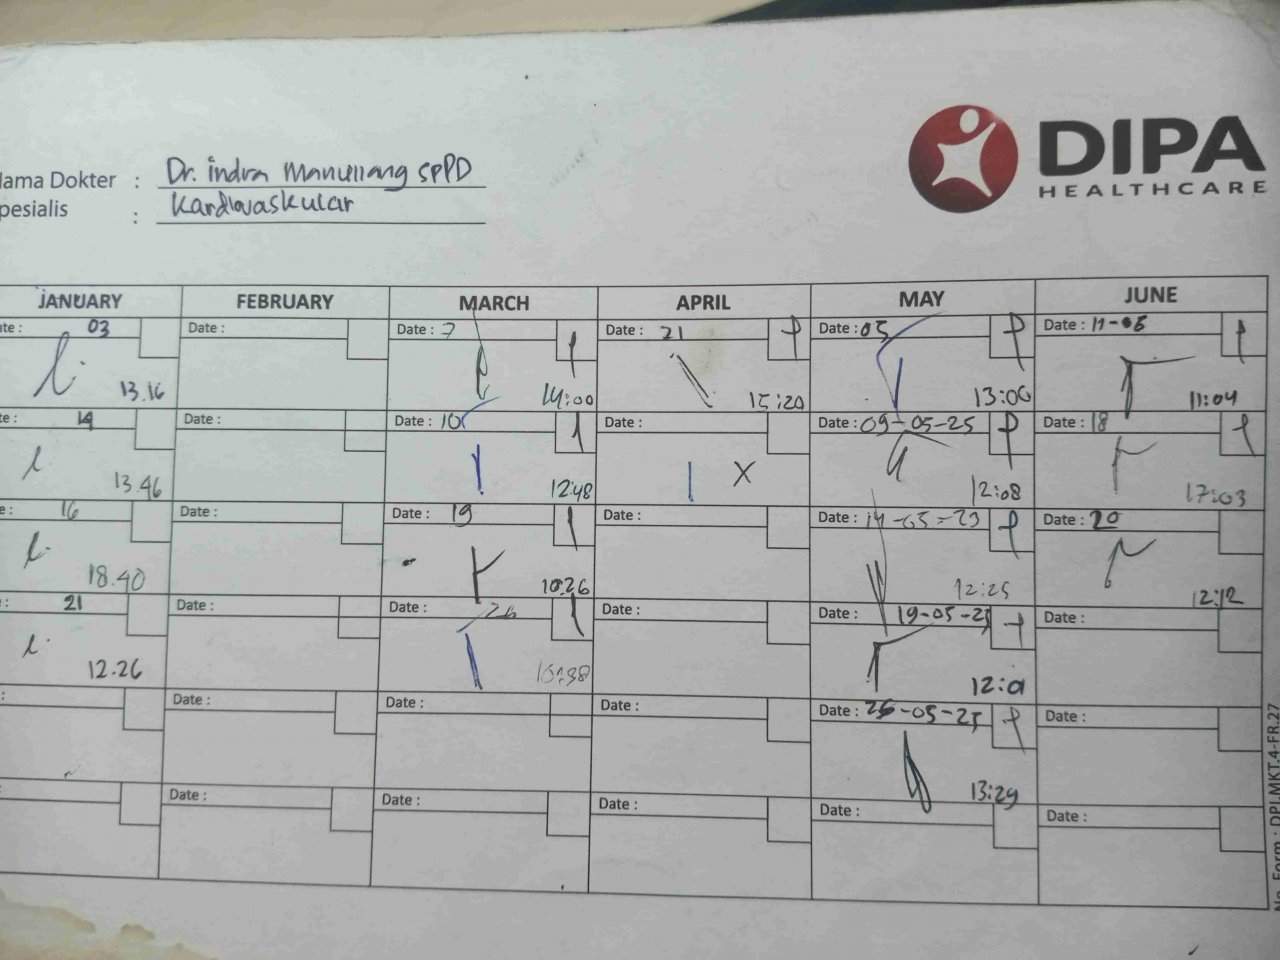 DIPA
HEALTHCARE
lama Dokter : Dr. indra Manullang SPPD
pesialis : Kardiovaskular
JANUARY FEBRUARY MARCH APRIL MAY JUNE
te: 03 Date : Date : 7 Date : 21 Date : 05 Date : 11-06
13.16 14:00 15:20 13:00 11:04
te : 14 Date : Date : 10 Date : Date : 09-05-25 Date : 18
13.46 12:48 X 12:08 17:03
e: 16 Date : Date : 19 Date : Date : Date : 20
18.40 10.26 12:25 12:12
: 21 Date : Date : 26 Date : 19-05-25 Date :
12.26 12:01
: Date : Date : Date : Date : 26-05-25 Date :
13:29
: Date : Date : Date : Date : Date :
No. Form : DPI.MKT.4-FR.27